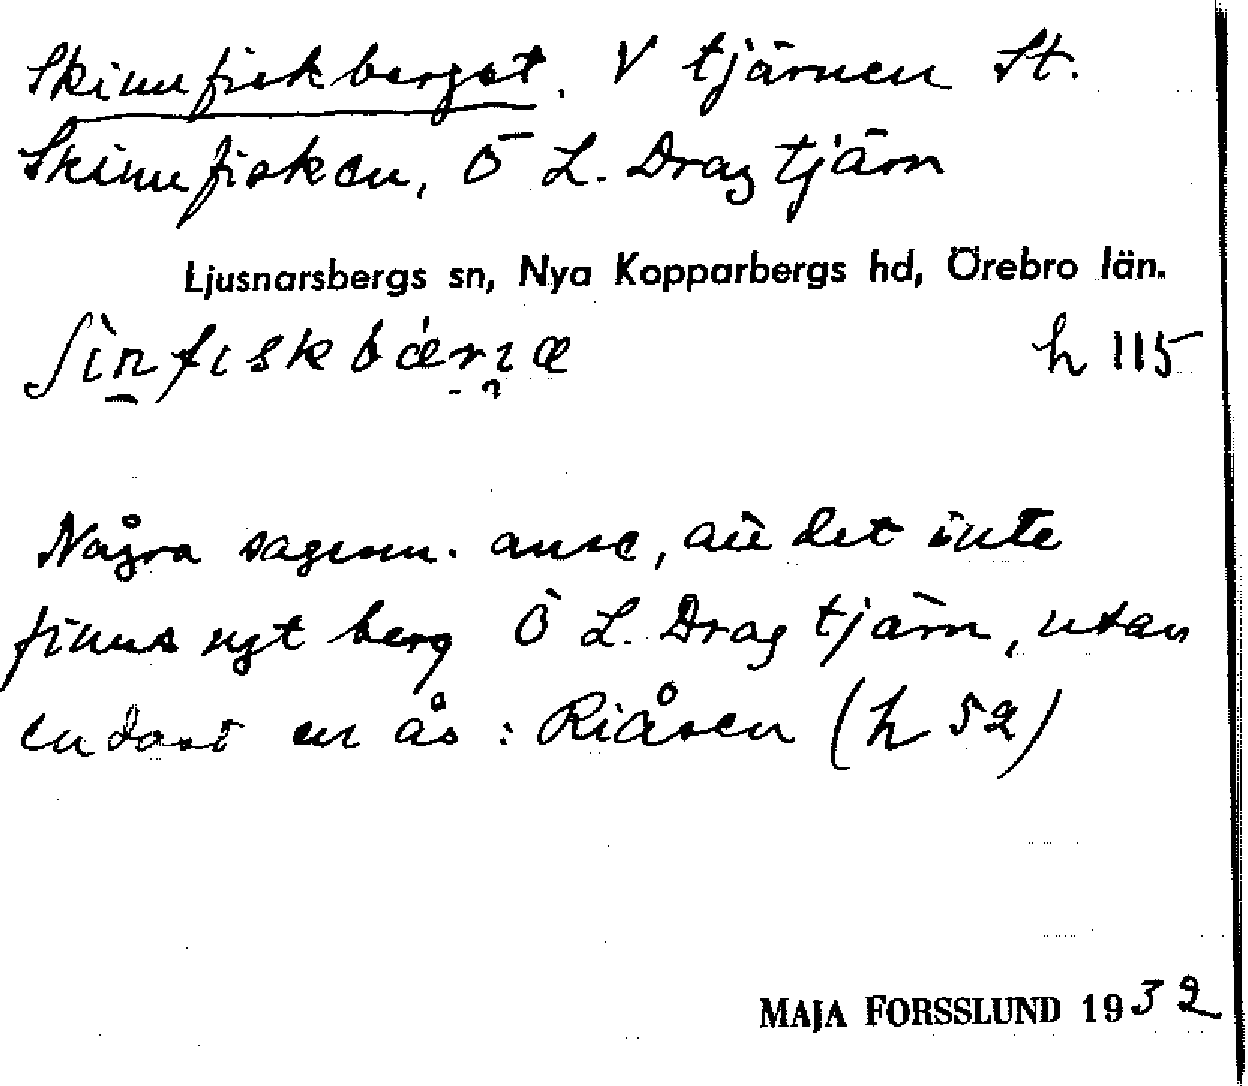 Skinnfiskberget. V tjärnen St.
Skinnfisken, Ö L. Dragtjärn
Ljusnarsbergs sn, Nya Kopparbergs hd, Örebro län.
ʃìnfiskbáærıæ h 115
Några sagesm. anse, att det inte
finns ngt berg Ö L. Dragtjärn, utan
endast en ås: Riåsen (h 52)
MAJA FORSSLUND 1932